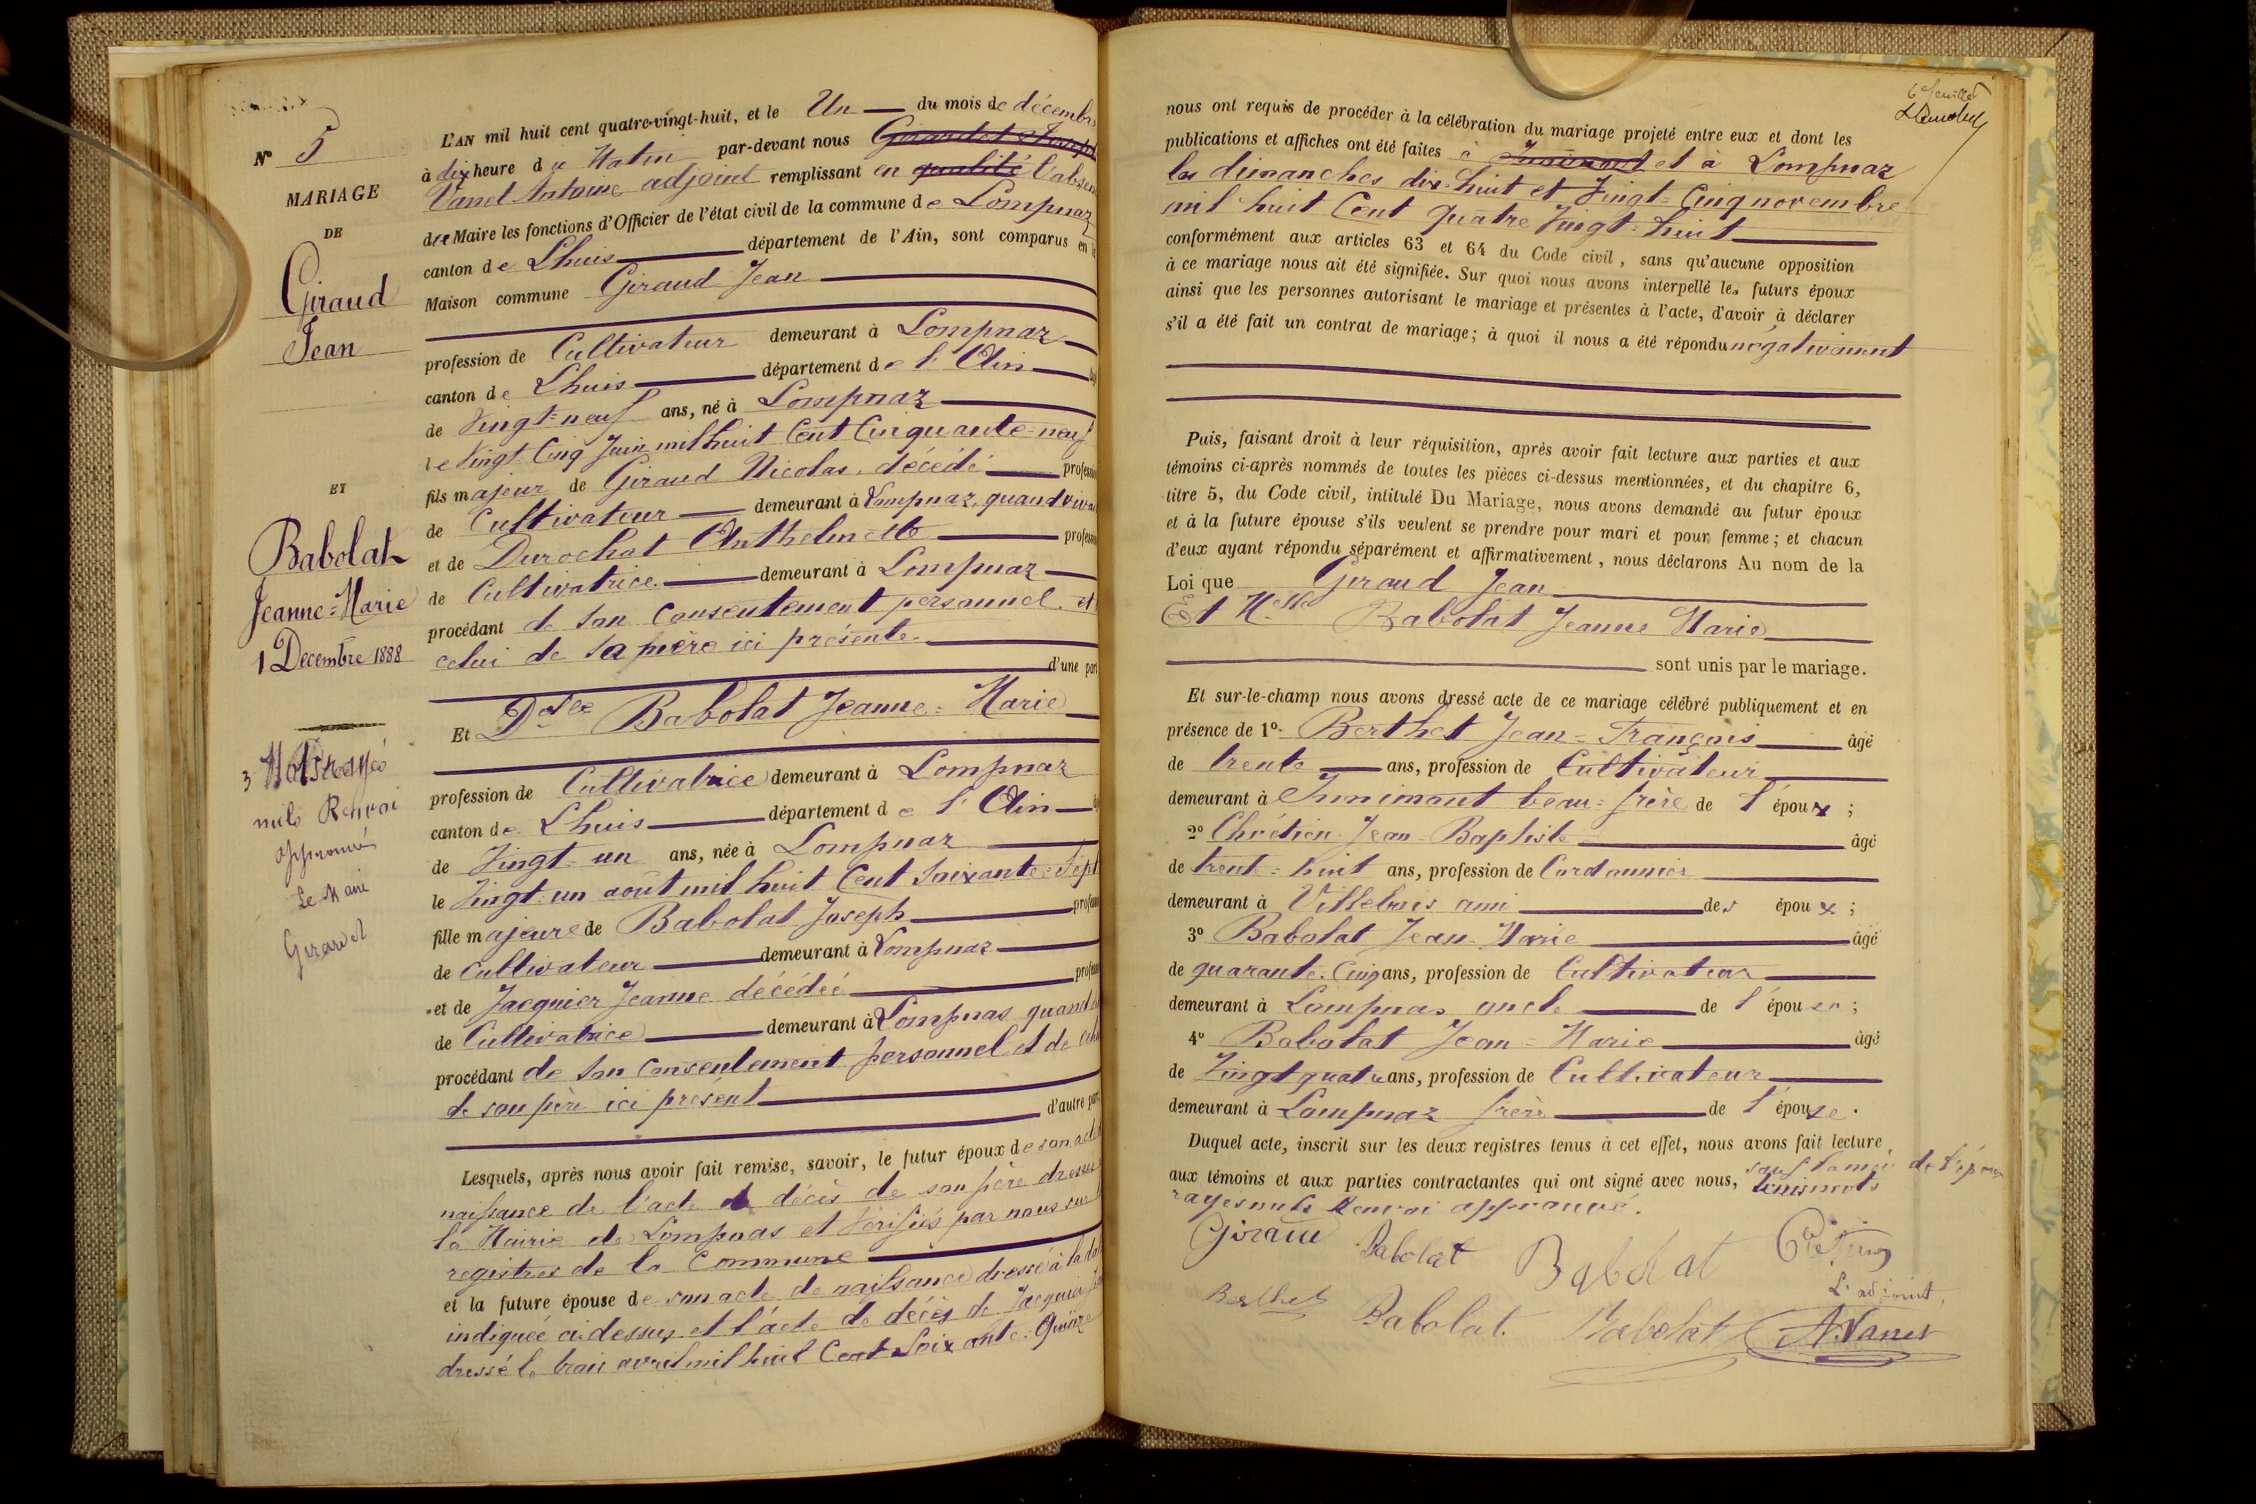 N° 5
MARIAGE
DE
Giraud
Jean
ET
Babolat
Jeanne=Marie
1 Decembre 1888
3 Mots rayés
nuls Renvoi
approuvés
Le Maire
Girardet
L'AN mil huit cent quatre-vingt-huit, et le Un du mois de décembre
à dix heure du Matin par-devant nous Girardet
Vanel Antoine adjoint remplissant en qualité l'absen
du Maire les fonctions d'Officier de l'état civil de la commune de Lompnaz
canton de Lhuis département de l'Ain, sont comparus en la
Maison commune Giraud Jean
profession de Cultivateur demeurant à Lompnaz
canton de Lhuis département de l'Ain âgé
de Vingt=neuf ans, né à Lompnaz
le Vingt Cinq Juin mil huit Cent Cinquante=neuf
fils majeur de Giraud Nicolas, décédé profession
de Cultivateur demeurant à Lompnaz, quand viva
et de Durochat Anthelmette profession
de Cultivatrice demeurant à Lompnaz
procédant de son consentement personnel et
celui de sa mère ici présente
d'une part
Et Delle Babolat Jeanne=Marie
profession de Cultivatrice demeurant à Lompnaz
canton de Lhuis département de l'Ain
de Vingt=un ans, née à Lompnaz
le Vingt un août mil huit Cent Soixante=Sept
fille majeure de Babolat Joseph profession
de cultivateur demeurant à Lompnaz
et de Jacquier Jeanne décédée profession
de Cultivatrice demeurant à Lompnas quand
procédant de son consentement personnel et de celui
de son père ici présent
d'autre part
Lesquels, après nous avoir fait remise, savoir, le futur époux de son acte
naissance de l'acte de décès de son père dressés
la Mairie de Lompnas et vérifiés par nous sur
registres de la Commune
et la future épouse de son acte de naissance dressé à la date
indiquée ci-dessus et l'acte de décès de Jacquier
dressé le trois avril mil huit Cent Soixante=Quinze
6e feuillet
nous ont requis de procéder à la célébration du mariage projeté entre eux et dont les
publications et affiches ont été faites à Innimont et à Lompnaz
les dimanches dix-huit et Vingt=Cinq novembre
mil huit Cent quatre Vingt=huit
conformément aux articles 63 et 64 du Code civil, sans qu'aucune opposition
à ce mariage nous ait été signifiée. Sur quoi nous avons interpellé les futurs époux
ainsi que les personnes autorisant le mariage et présentes à l'acte, d'avoir à déclarer
s'il a été fait un contrat de mariage; à quoi il nous a été répondu négativement
Puis, faisant droit à leur réquisition, après avoir fait lecture aux parties et aux
témoins ci-après nommés de toutes les pièces ci-dessus mentionnées, et du chapitre 6,
titre 5, du Code civil, intitulé Du Mariage, nous avons demandé au futur époux
et à la future épouse s'ils veulent se prendre pour mari et pour femme; et chacun
d'eux ayant répondu séparément et affirmativement, nous déclarons Au nom de la
Loi que Giraud Jean
Et Melle Babolat Jeanne Marie
sont unis par le mariage.
Et sur-le-champ nous avons dressé acte de ce mariage célébré publiquement et en
présence de 1° Berthet Jean=François âgé
de trente ans, profession de Cultivateur
demeurant à Innimont beau=frère de l'époux;
2° Chrétien Jean-Baptiste âgé
de trente=huit ans, profession de Cordonnier
demeurant à Villebois ami des époux;
3° Babolat Jean-Marie âgé
de quarante-Cinq ans, profession de Cultivateur
demeurant à Lompnas oncle de l'épouse;
4° Babolat Jean=Marie âgé
de Vingt quatre ans, profession de Cultivateur
demeurant à Lompnaz frère de l'épouse.
Duquel acte, inscrit sur les deux registres tenus à cet effet, nous avons fait lecture
aux témoins et aux parties contractantes qui ont signé avec nous, sauf la mère de l'époux trois mots
rayés nuls Renvoi approuvé.
Giraud Babolat Babolat
L'adjoint,
Berthet Babolat. Babolat A. Vanel